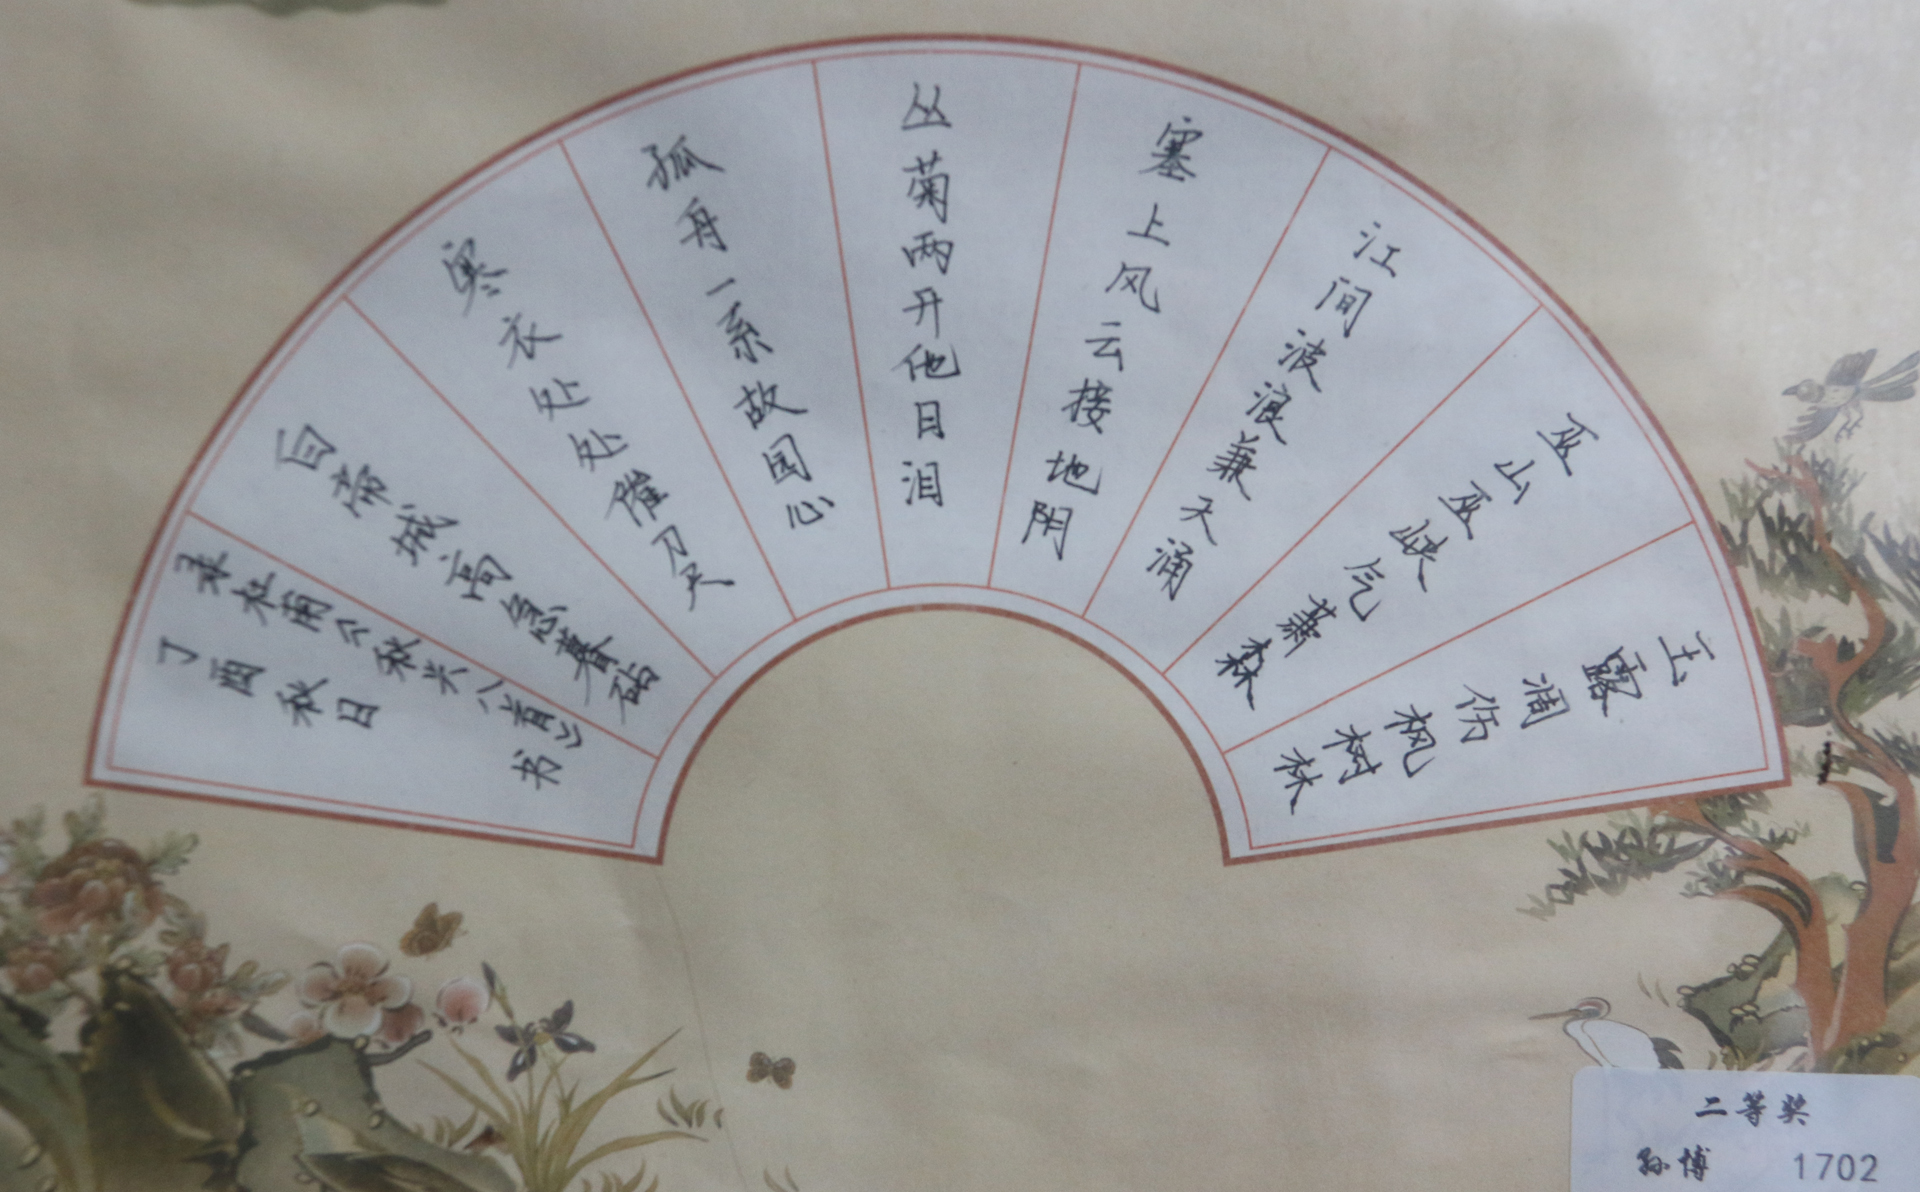 玉露凋伤枫树林
巫山巫峡气萧森
江间波浪兼天涌
塞上风云接地阴
丛菊两开他日泪
孤舟一系故园心
寒衣处处催刀尺
白帝城高急暮砧
录杜甫《秋兴八首》书
丁酉秋日
二等奖
孙博 1702